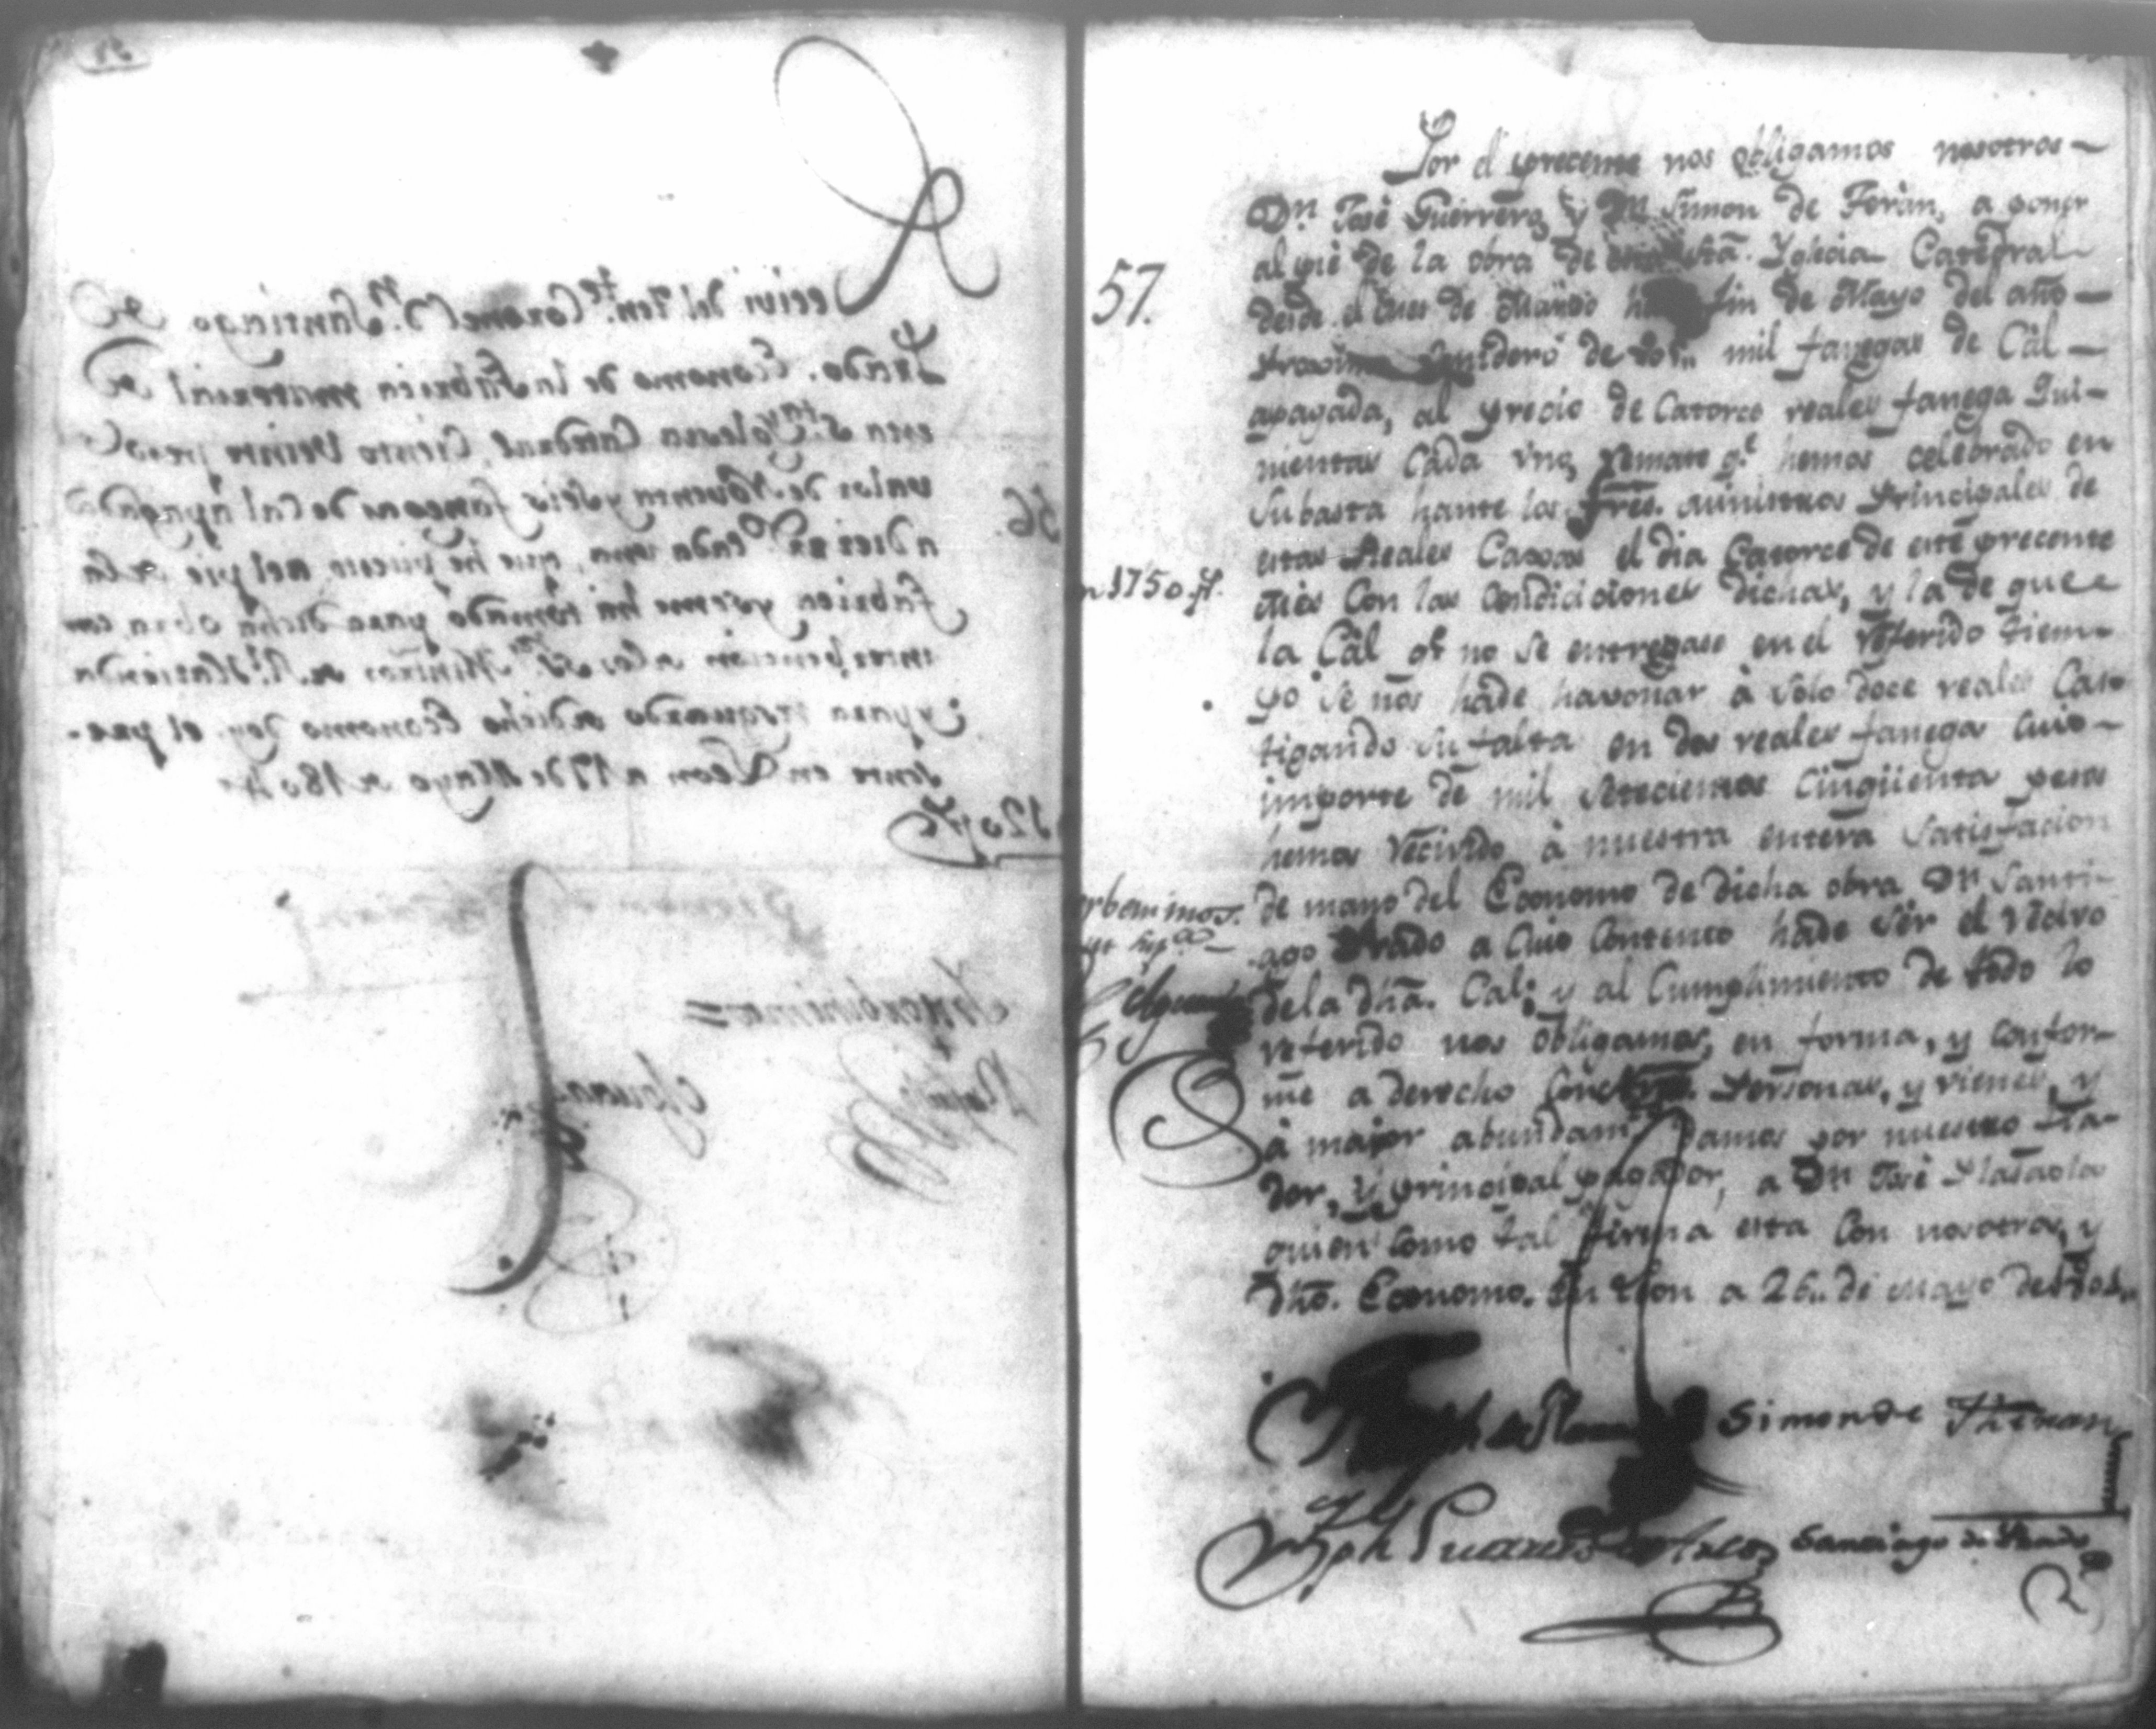 Recivi del Ten.te Coronel D.n Santiago de
Prado. Economo de la Fabrica material de
esta S.ta Yglesia Catedral, Ciento Veinte pesos
valor de Noventa y Seis fanegas de Cal apagada
a diez r.s cada una, que he puesto en el pie de la
fabrica y se me ha tomado para dicha obra con
de R.l Hacienda
y para resguardo de dicho Economo doy el pre-
sente en Leon a 17 de Mayo de 1804
120 p.s
56.
57.
Por el precente nos obligamos nosotros
D.n José Guerrero, y D.n Simon de Terán, a poner
al pié de la obra de esta Stã. Yglecia Catedral
desde el mes de Marzo fin de Mayo del año
de dos mil fanegas de Cál
apagada, al precio de Catorce reales fanega Qui-
nientas Cada uno, remate q.e hemos celebrado en
Subasta hante los Srẽs. Ministros Principales de
estas Reales Caxas el dia Catorce de este precente
mes Con las Condiciciones dichas, y la de que
1750 p.s
la Cál q.e no se entregase en el referido tiem-
po se nos háde havonar à solo doce reales Cas-
tigando su falta en dos reales fanega Cuio
importe de mil setecientos Cinqüenta pesos
hemos recivido à nuestra entera Satisfacion
de mano del Economo de dicha obra D.n Santi-
ago Prado a Cuio Contento háde sér el recivo
dela dhã. Cal; y al Cumplimiento de todo lo
referido nos obligamos, en forma, y Confor-
me a derecho Personas, y vienes, y
à maior abundam.to damos por nuestro fia-
dor, y principal pagador, a D.n José
quien como tal firma esta Con nosotros, y
dhõ. Economo. En Leon a 26.. de Mayo de
Simon de Theran
Santiago de Prado